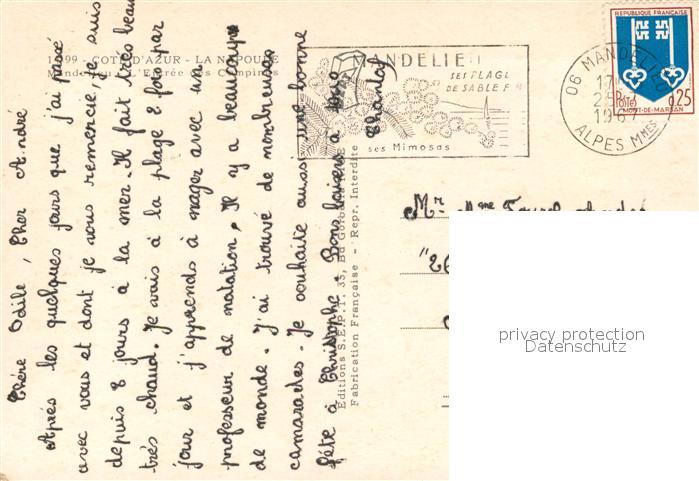 1499 - COTE D'AZUR - LA NAPOULE
Mandelieu - L'Entrée des Campings
Chère Odile, Cher André
Après les quelques jours que j'ai passé
avec vous et dont je vous remercie, je suis
depuis 8 jours à la mer. Il fait très beau
très chaud. Je vais à la plage 2 fois par
jour et j'apprends à nager avec un
professeur de natation. Il y a beaucoup
de monde. J'ai trouvé de nombreuses
camarades. Je souhaite aussi une bonne
fête à Christophe. Bons baisers à tous
Chantal
Editions S.E.P.T. 35, Bd Gorbella
Fabrication Française - Repr. Interdite
MANDELIEU
SES PLAGES
DE SABLE FIN
ses Mimosas
06 MANDELIEU
17
25
1967
ALPES MMES
REPUBLIQUE FRANÇAISE
Postes
0,25
MONT-DE-MARSAN
Mr Mme
"26
privacy protection
Datenschutz